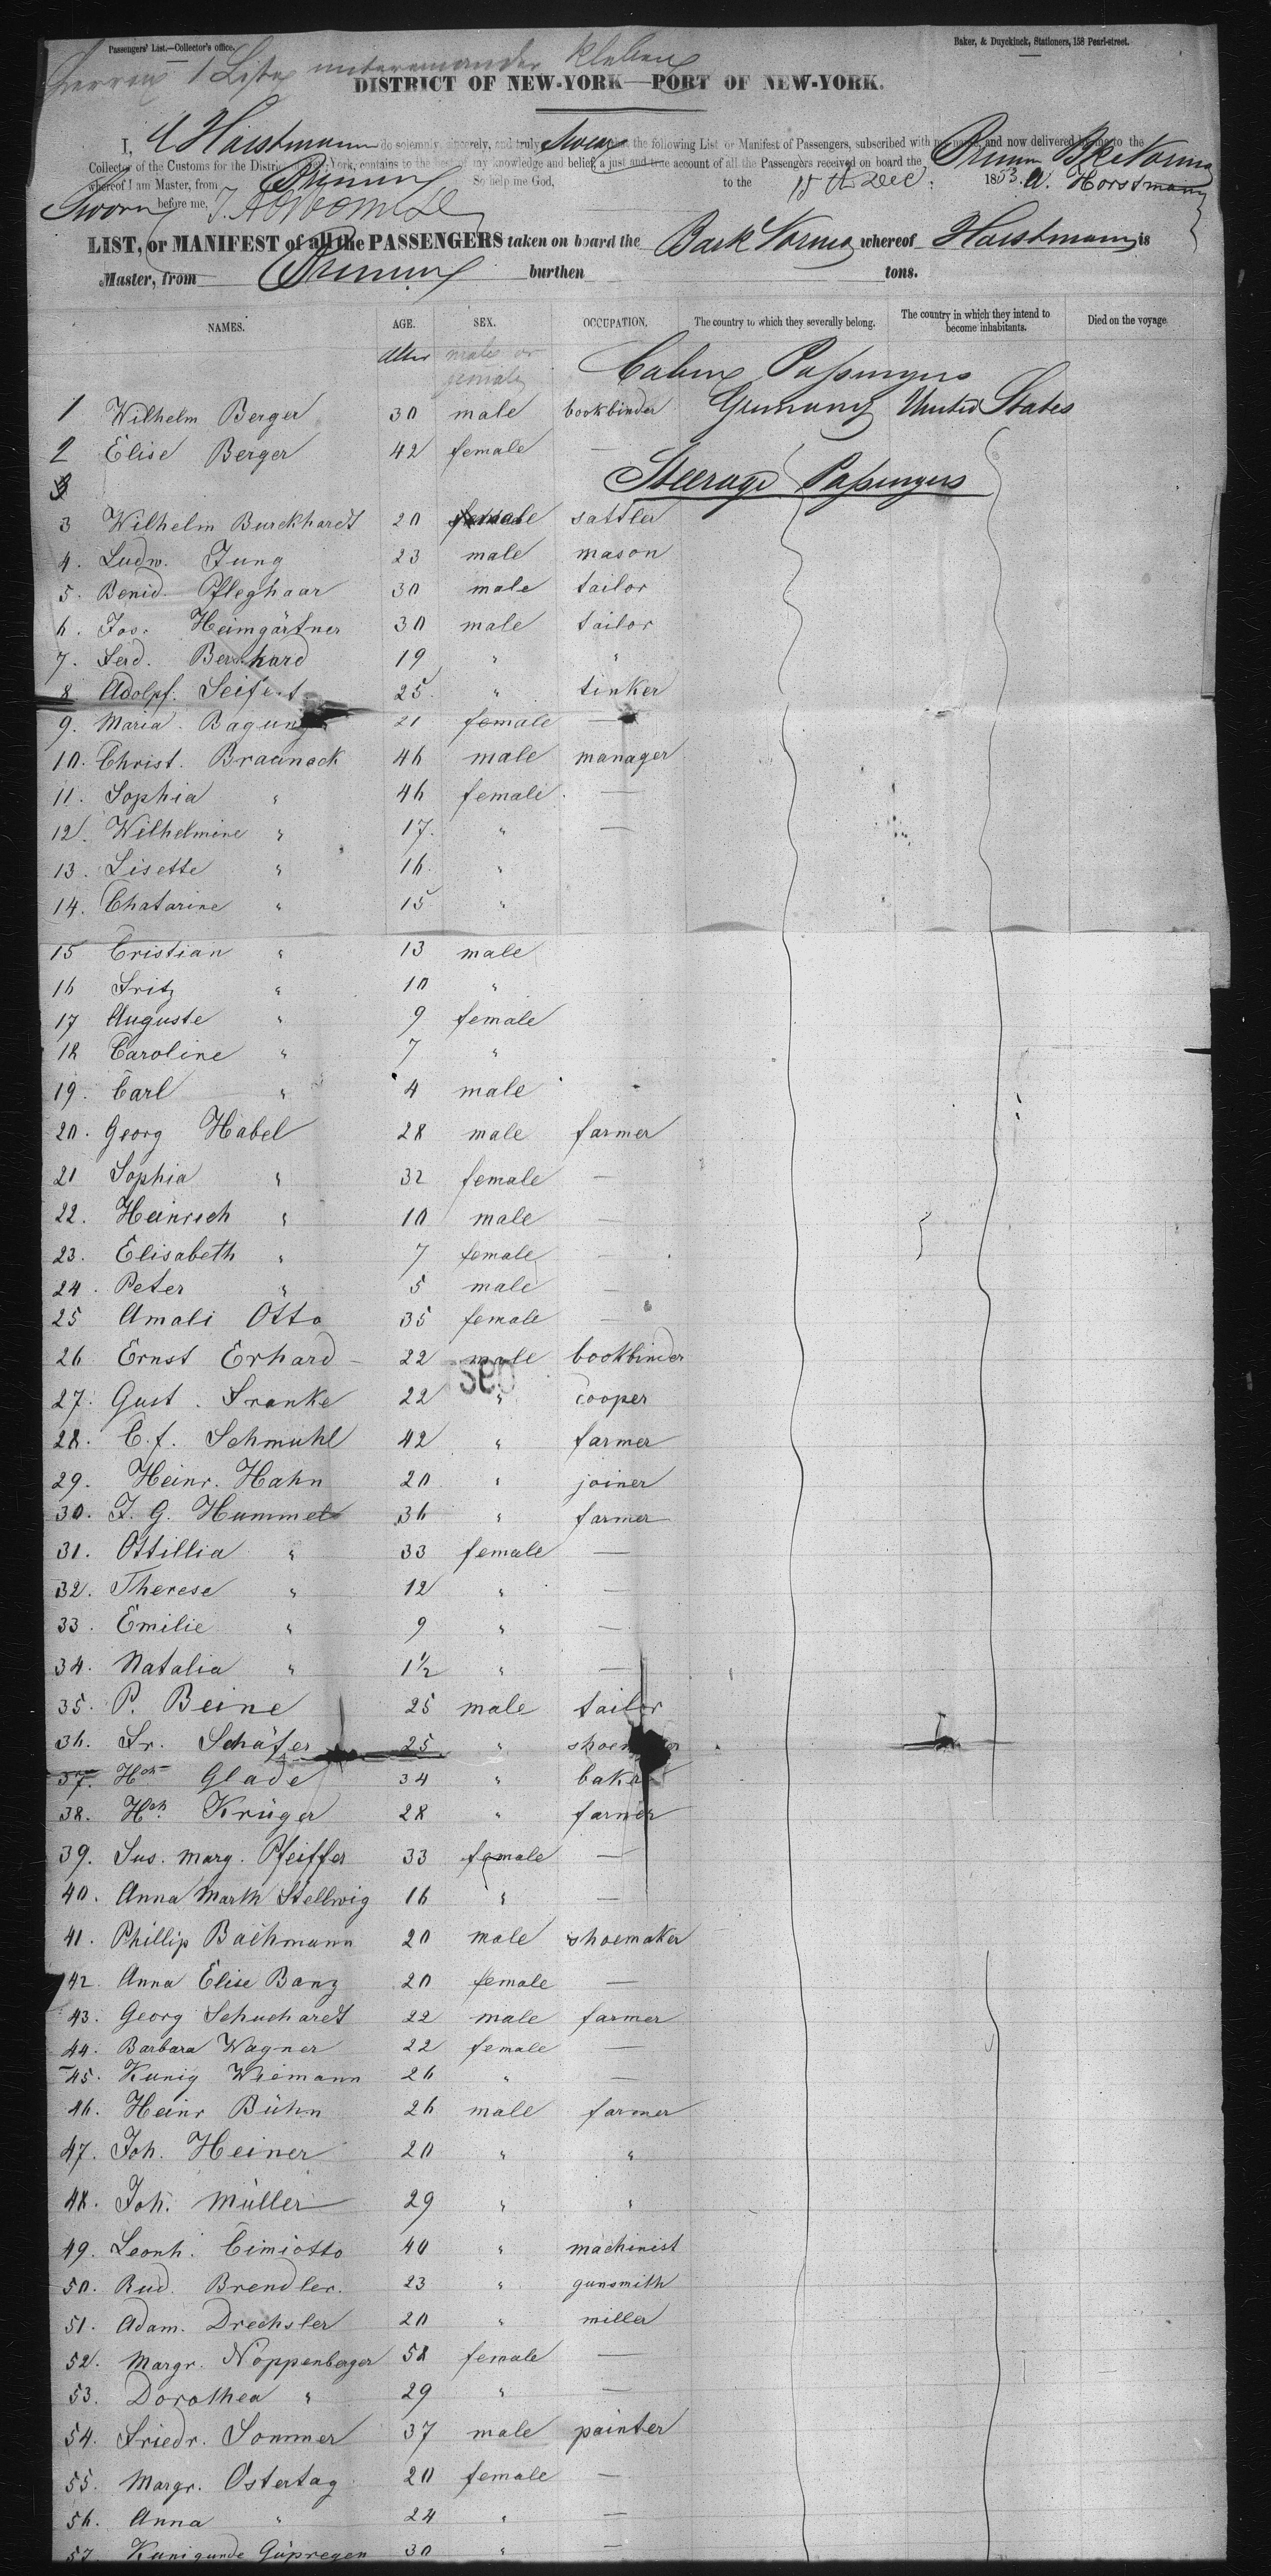 Passengers' List.—Collector's office.
Baker, & Duyckinck, Stationers, 158 Pearl-street.
1 Liste untereinander kleben
DISTRICT OF NEW-YORK—PORT OF NEW-YORK.
I, Haustmann do solemnly, sincerely, and truly Swear that the following List or Manifest of Passengers, subscribed with my name, and now delivered by me to the
Collector of the Customs for the District of New-York, contains to the best of my knowledge and belief, a just and true account of all the Passengers received on board the Bremen Bke Norma
whereof I am Master, from Bremen So help me God, to the 15th Dec. 1853. Horstmann
Sworn before me,
LIST, or MANIFEST of all the PASSENGERS taken on board the Bark Norma whereof Haustmann is
Master, from Bremen burthen tons.
NAMES. AGE. SEX. OCCUPATION. The country to which they severally belong. The country in which they intend to become inhabitants. Died on the voyage
Alter male or female
Cabin Passengers
1 Wilhelm Berger 30 male bookbinder Germany United States
2 Elise Berger 42 female —
Steerage Passengers
3 Wilhelm Burckhardt 20 male sattler
4. Ludw. Jung 23 male mason
5. Benid. Pfleghaar 30 male tailor
6. Jos. Heimgärtner 30 male tailor
7. Ferd. Bernhard 19 " "
8 Adolpf. Seifert 25. " tinker
9. Maria. 21 female —
10. Christ. Braunack 46 male manager
11. Sophia " 46 female. —
12. Wilhelmine " 17. " —
13. Lisette " 16. "
14. Chatarine " 15 "
15 Cristian " 13 male
16 Fritz " 10 "
17 Auguste " 9 female
18 Caroline " 7 "
19. Carl " 4 male
20. Georg Habel 28 male farmer
21 Sophia " 32 female —
22. Heinrich " 10 male —
23. Elisabeth " 7 female —
24. Peter " 5 male —
25 Amali Otto 35 female —
26 Ernst Erhard 22 male bookbinder
27. Gust. Franke 22 " cooper
28. C. f. Schmuhl 42 " farmer
29. Heinr. Hahn 20 " joiner
30. J. G. Hummel 36 " farmer
31. Ottillia " 33 female —
32. Therese " 12 " —
33. Emilie " 9 " —
34. Natalia " 1½ " —
35. P. Beine 25 male tailor
36. Fr. Schäfer 25 " shoemaker
37. Hch Glade 34 " baker
38. Hch. Krüger 28 " farmer
39. Sus. Marg. Pfeiffer 33 female —
40. Anna Marth Stellwig 16 " —
41. Phillip Bachmann 20 male shoemaker
42. Anna Elise Banz 20 female —
43. Georg Schuchardt 22 male farmer
44. Barbara Wagner 22 female —
45. Kunig Wiemann 26 " —
46. Heinr Bühn 26 male farmer
47. Joh. Heiner 20 " "
48. Joh. Müller 29 " "
49. Leonh. Cimiotto 40 " machinist
50. Rud. Brendler. 23 " gunsmith
51. Adam. Drechsler 20 " miller
52. Margr. Noppenberger 58 female —
53. Dorothea " 29 " —
54. Friedr. Sommer 37 male painter
55. Margr. Ostertag 20 female —
56. Anna " 24 " —
57. Kunigunde Güpregen 30 " —